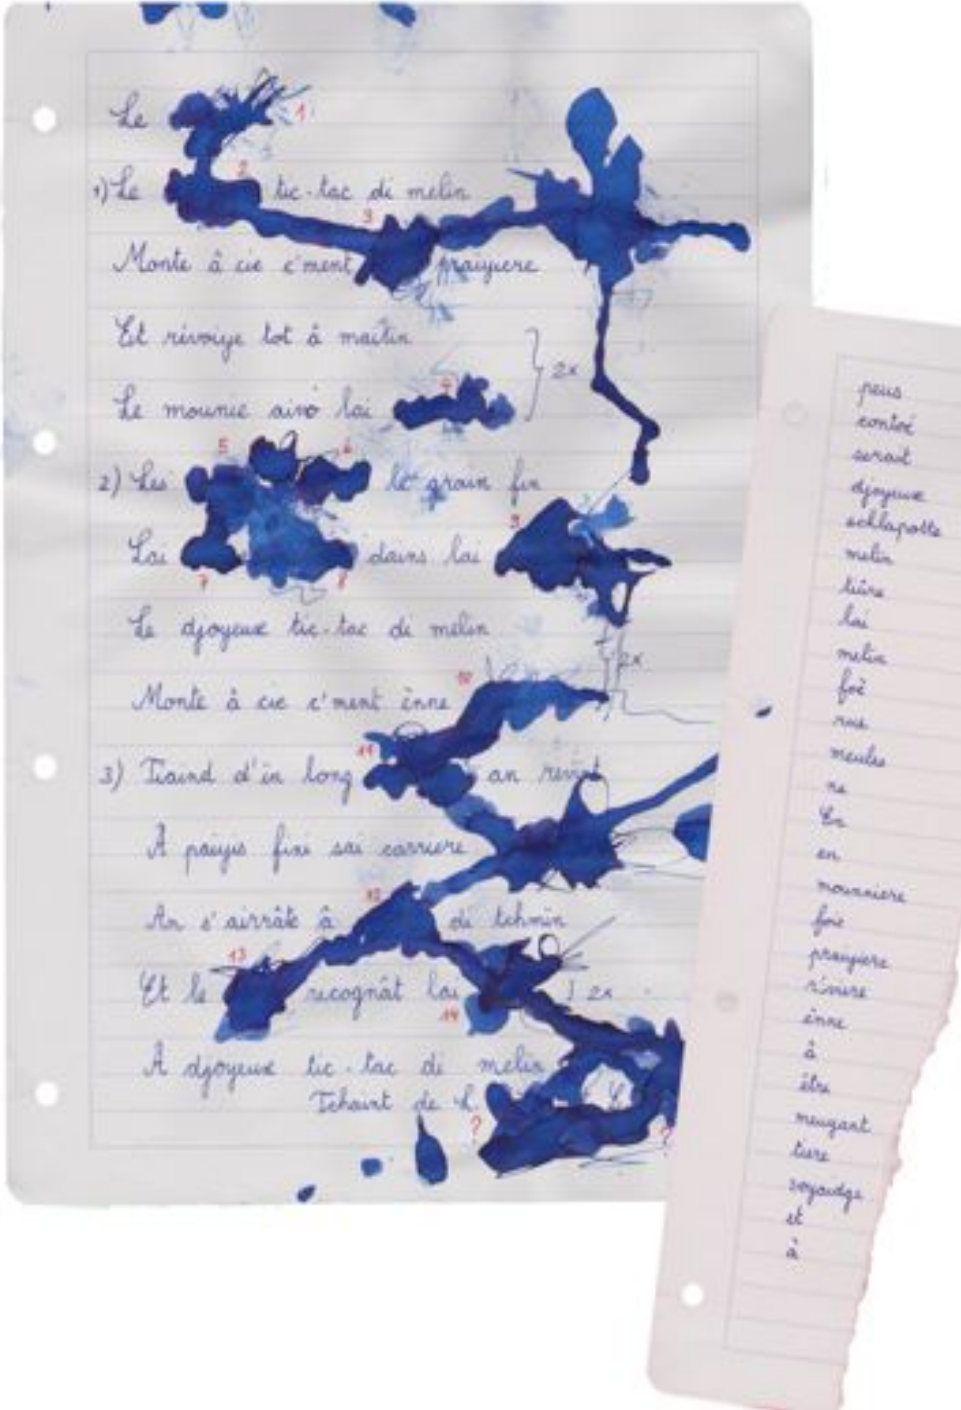 Le 1
1) Le 2 tic-tac di melin
3
Monte â cie c'ment praiyiere
Et révoiye tot â maitin
2x
Le mounie aivô lai 4
5 6
2) Les le grain fin
Lai dains lai 9
7 8
Le djoyeux tic-tac di melin
2x
Monte â cie c'ment ènne 10
11
3) Tiaind d'in long an revint
À paiyis fini sai carriere
12
An s'airrâte â di tchmin
13
Et le recognât lai 2x
14
À djoyeux tic-tac di melin
Tchaint de
? ?
peus
contoé
serait
djoyeux
schlapotte
melin
tiûre
lai
melin
foè
rue
meules
ne
En
en
mounniere
foie
praiyiere
r'viere
ènne
â
être
meuyant
tiere
voyaidge
et
à